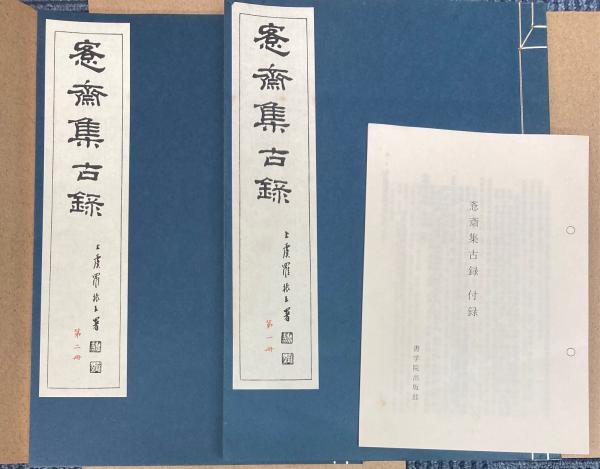 愙齋集古錄
上虞羅振玉署
第二冊
愙齋集古錄
上虞羅振玉署
第一冊
愙斎集古録 付録
書学院出版部